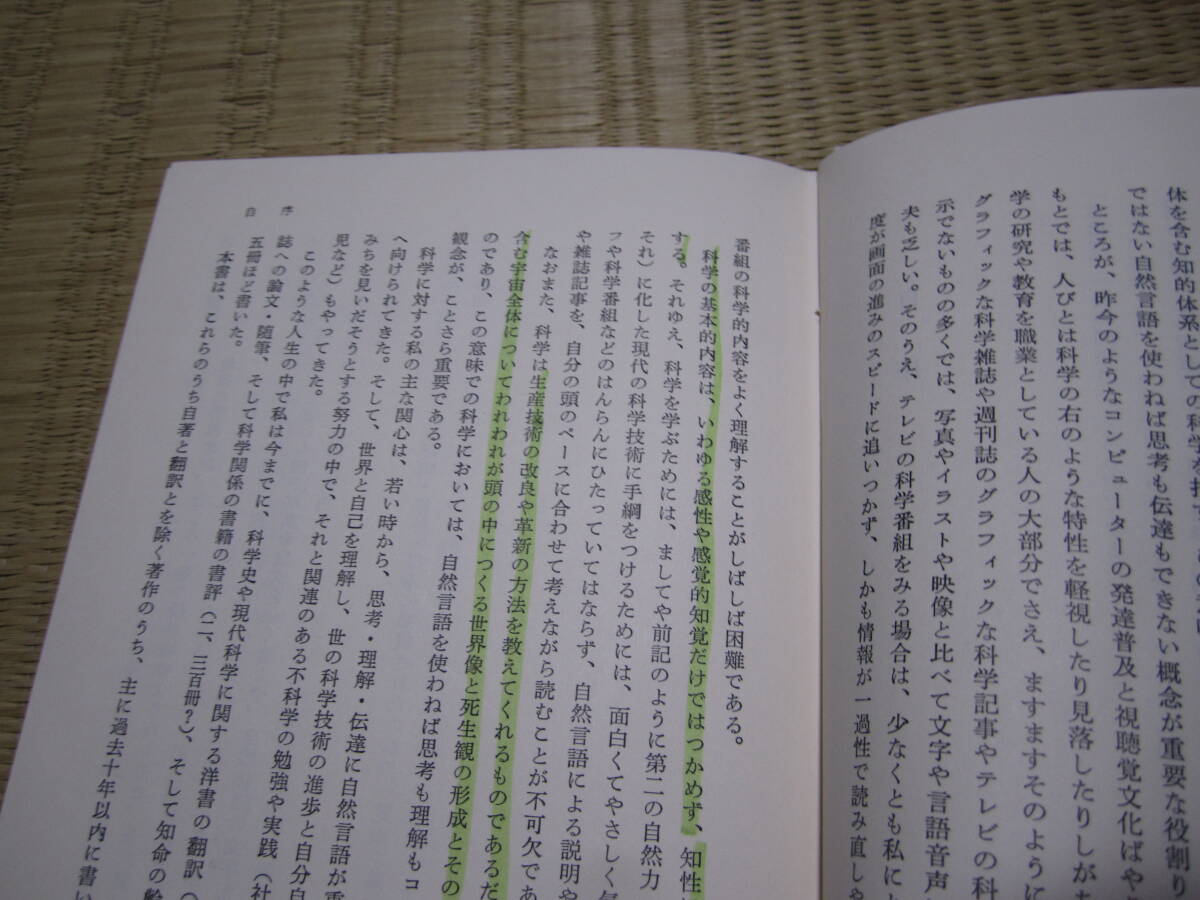 体を含む知的体系としての科学を
ではない自然言語を使わねば思考も伝達もできない概念が重要な役割り
ところが、昨今のようなコンピューターの発達普及と視聴覚文化ばや
もとでは、人びとは科学の右のような特性を軽視したり見落したりしが
学の研究や教育を職業としている人の大部分でさえ、ますますそのように
グラフィックな科学雑誌や週刊誌のグラフィックな科学記事やテレビの科
示でないものの多くでは、写真やイラストや映像と比べて文字や言語音声
夫も乏しい。そのうえ、テレビの科学番組をみる場合は、少なくとも私に
度が画面の進みのスピードに追いつかず、しかも情報が一過性で読み直しや
番組の科学的内容をよく理解することがしばしば困難である。
科学の基本的内容は、いわゆる感性や感覚的知覚だけではつかめず、知性
する。それゆえ、科学を学ぶためには、ましてや前記のように第二の自然力
それ)に化した現代の科学技術に手綱をつけるためには、面白くてやさしく
フや科学番組などのはんらんにひたっていてはならず、自然言語による説明や
や雑誌記事を、自分の頭のペースに合わせて考えながら読むことが不可欠であ
なおまた、科学は生産技術の改良や革新の方法を教えてくれるものであるだ
含む宇宙全体についてわれわれが頭の中につくる世界像と死生観の形成とその
のであり、この意味での科学においては、自然言語を使わねば思考も理解もコ
観念が、ことさら重要である。
科学に対する私の主な関心は、若い時から、思考・理解・伝達に自然言語が
へ向けられてきた。そして、世界と自己を理解し、世の科学技術の進歩と自分自
みちを見いだそうとする努力の中で、それと関連のある不科学の勉強や実践(社
児など)もやってきた。
このような人生の中で私は今までに、科学史や現代科学に関する洋書の翻訳(
誌への論文・随筆、そして科学関係の書籍の書評(二、三百冊?)、そして知命の
五冊ほど書いた。
本書は、これらのうち自著と翻訳とを除く著作のうち、主に過去十年以内に書い
自序